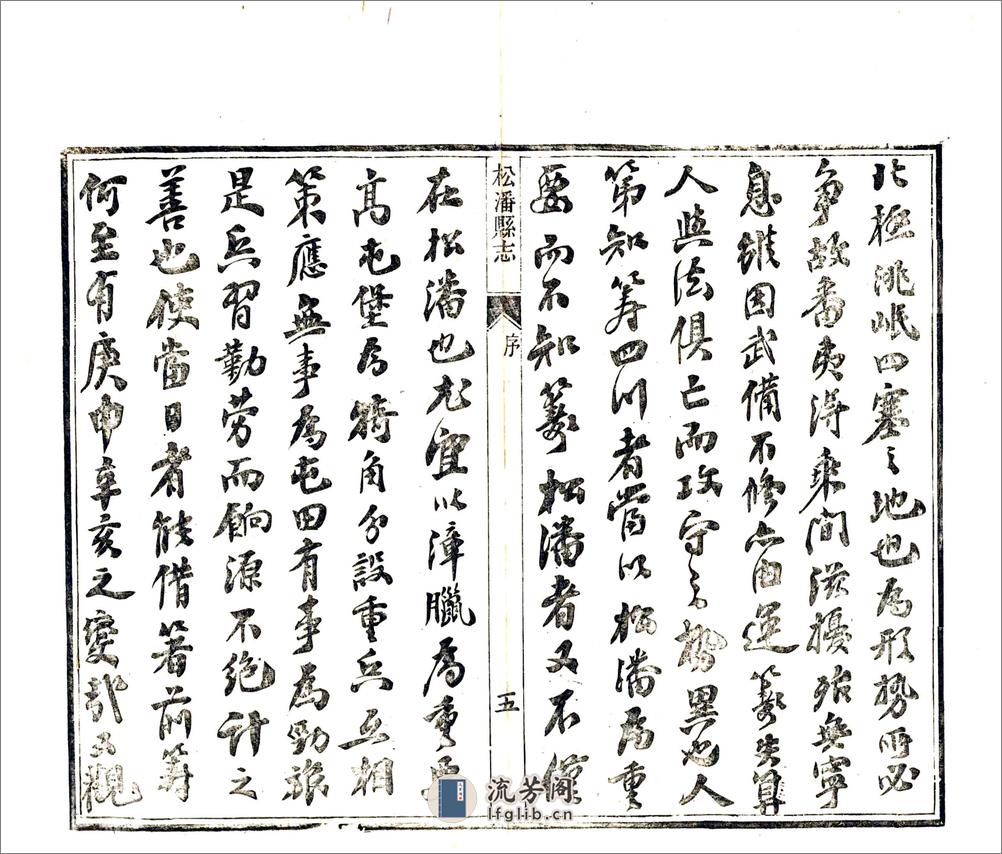 北極洮岷四塞之地也為形勢所必
爭故番夷得乘間滋擾殆無寧
息雖因武備不修亦由運籌失算
人與法俱亡而攻守之勢異也人
第知籌四川者當以松潘為重
要而不知籌松潘者又不僅
松潘縣志
序
五
在松潘也尤宜以漳臘為重
高屯堡為犄角分設重兵互相
策應無事為屯田有事為勁旅
是兵習勤勞而餉源不絕計之
善也使當日者能借箸前籌
何至有庚申辛亥之變哉又觀
流芳阁
lfglib.cn